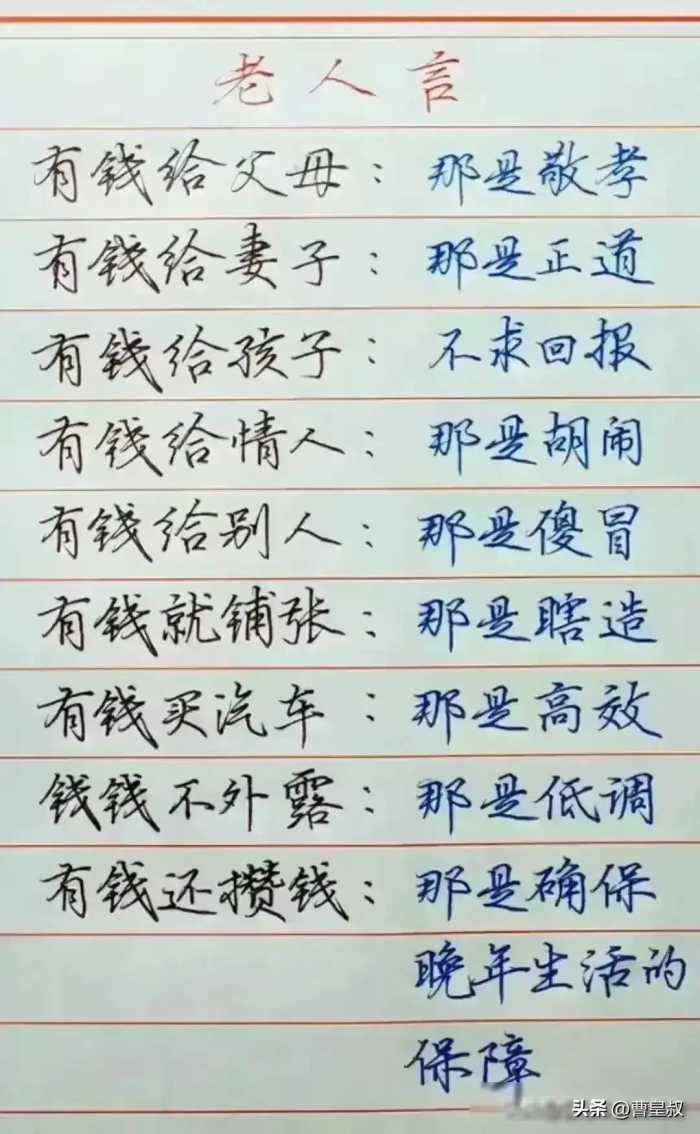 老人言
有钱给父母：那是敬孝
有钱给妻子：那是正道
有钱给孩子：不求回报
有钱给情人：那是胡闹
有钱给别人：那是傻冒
有钱就铺张：那是瞎造
有钱买汽车：那是高效
钱钱不外露：那是低调
有钱还攒钱：那是确保
晚年生活的
保障
头条 @曹皇叔